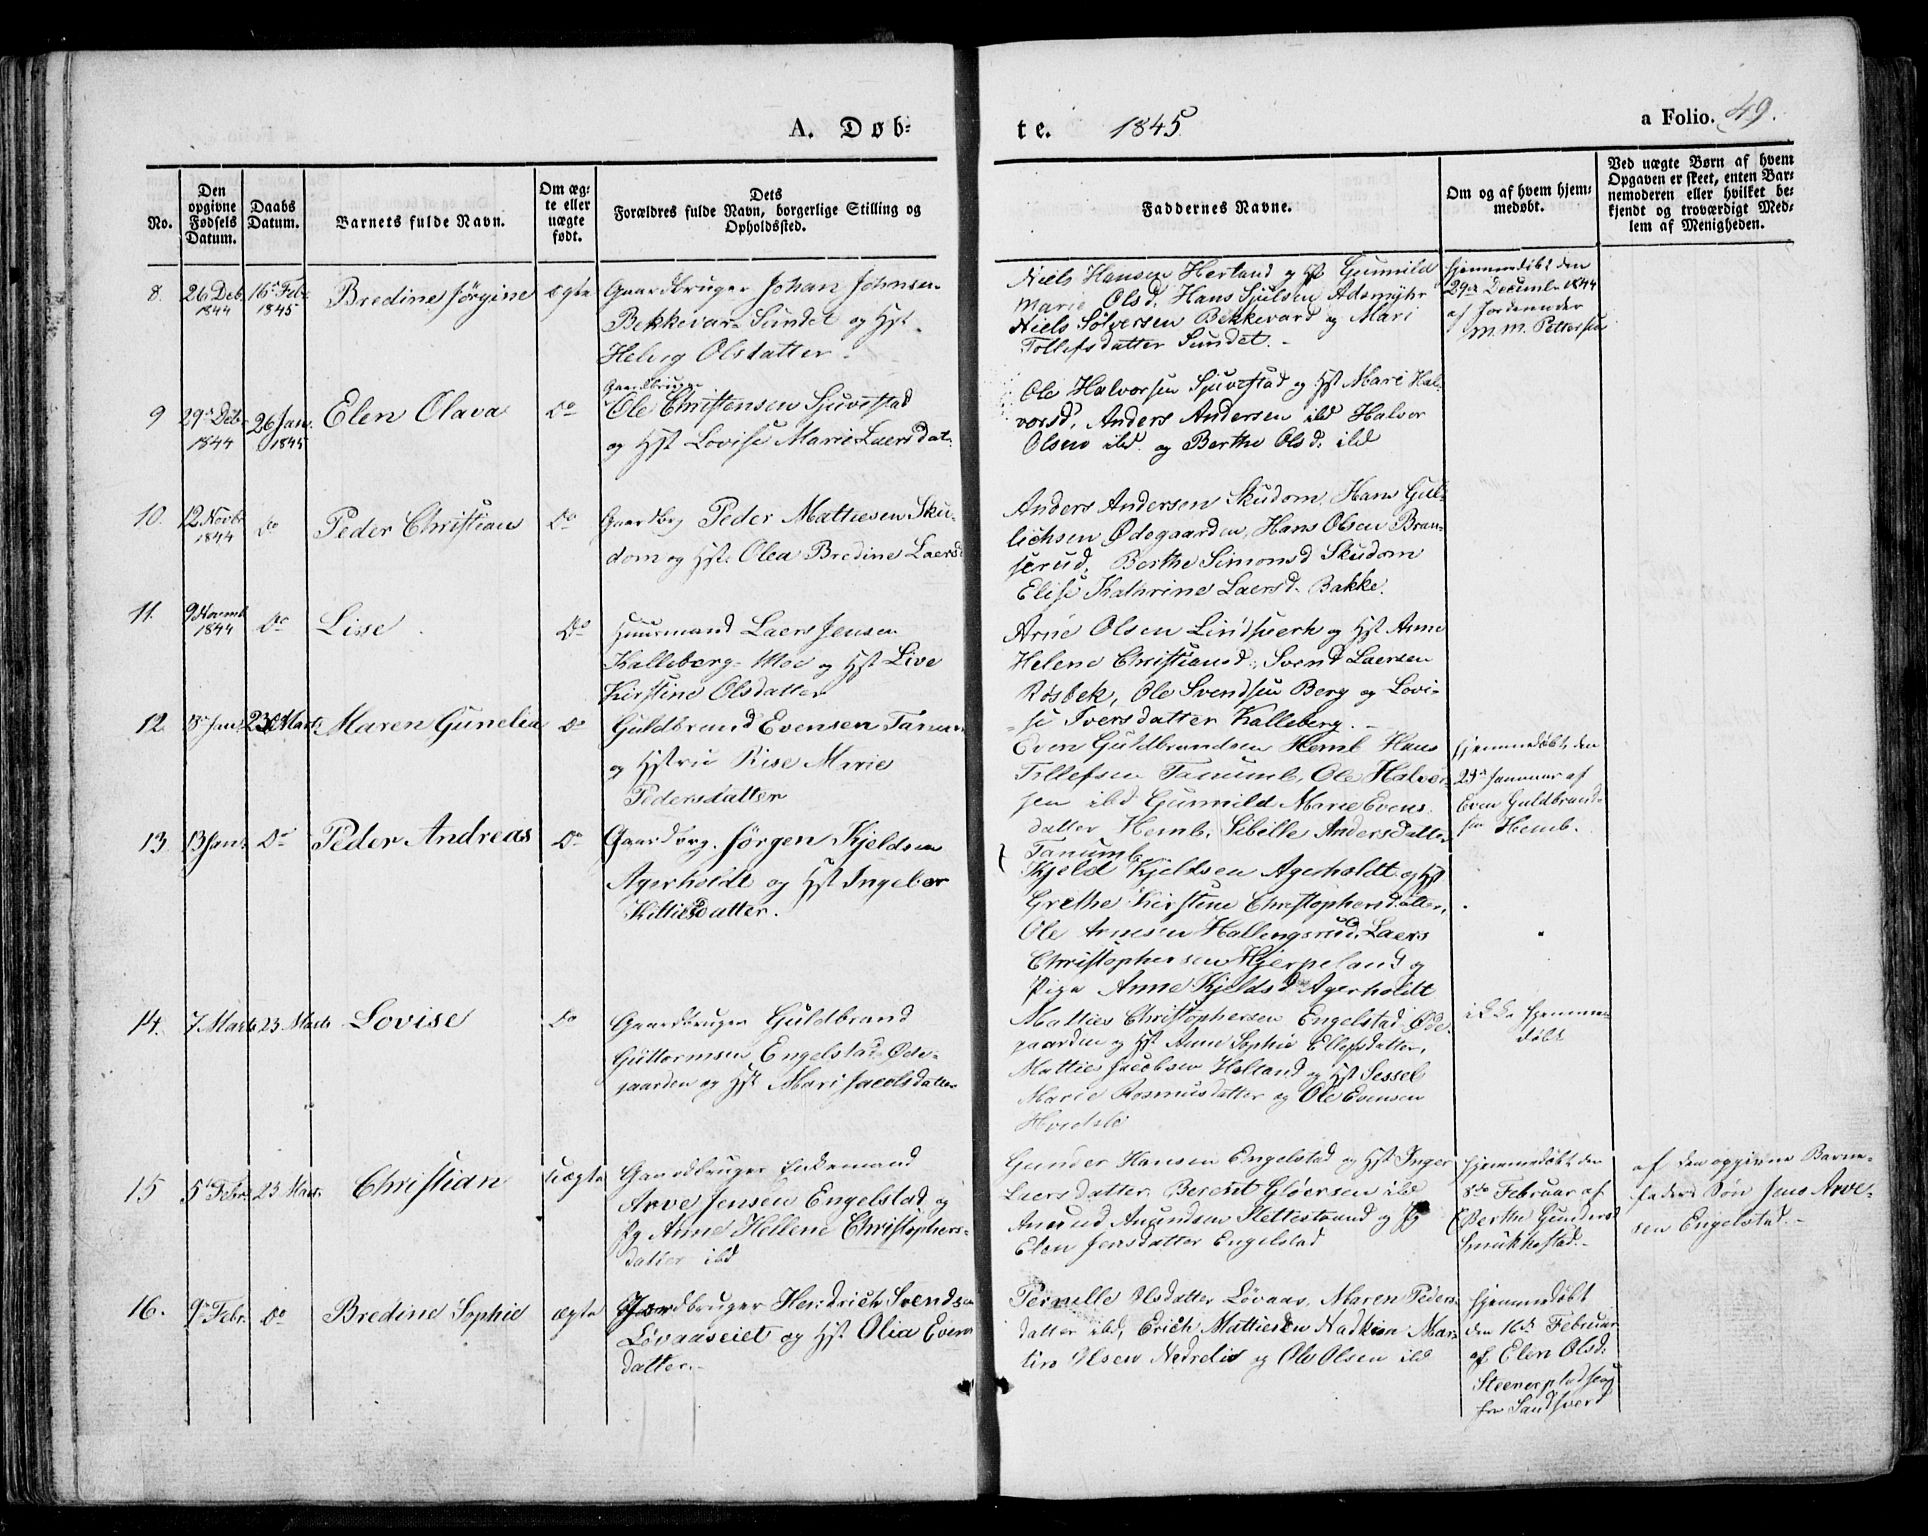 A. Døb-
te. 1845
a Folio. 49.
No.
Den opgivne Fødsels Datum.
Daabs Datum.
Barnets fulde Navn.
Om ægte eller uægte født.
Dets
Forældres fulde Navn, borgerlige Stilling og
Opholdssted.
Faddernes Navne.
Om og af hvem hjem-
medøbt.
Ved uægte Børn af hvem
Opgaven er skeet, enten Bar-
nemoderen eller hvilket be-
kjendt og troværdigt Med-
lem af Menigheden.
8. 26 Deb. 1844 16 Feb. 1845 Bredine Jørgine ægte
Gaardbruger Johan Johnsen
Bekkevar-Sundet og Hst.
Helvig Olsdatter.
Niels Hansen Herland og Hst Gunnild
Marie Olsd. Hans Sjulsen Adsmyhr
Niels Sølversen Bekkevard og Mari
Tollefsdatter Sundet.
hjemmedøbt den
29de Decembr 1844
af Jordemoder
M. M. Pettersen
9 29 Deb. 1844 26 Jan. 1845 Elen Olava Do
Gaardbruger
Ole Christensen Sjuvestad
og Hst Lovise Marie Laersdat.
Ole Halvorsen Sjuvestad og Hst Mari Hal-
vorsd. Anders Andersen ibd Halvor
Olsen ibd. og Berthe Olsd. ibd
10. 12 Novbr 1844 Do Peder Christian Do
Gaardbrg Peder Mathiesen Sku-
dom og Hst. Olea Bredine Laersd
Anders Andersen Skudom, Hans Gul-
lichsen Ødegaarden, Hans Olsen Bran-
serud. Berthe Simonsd Skudom
Elise Kathrine Laersd. Bakke.
11. 9 Novemb 1844 Do Lisse Do
Huusmand Laers Jensen
Kalleberg-Moe og Hst Live
Kirstine Olsdatter
Arne Olsen Lindsverk og Hst Anne
Helene Christiansd., Svend Laersen
Røsbek, Ole Svendsen Berg og Lovi-
se Iversdatter Kalleberg.
12. Maren Gunelia Do
Guldbrand Evensen Tanum
og Hstru Rise Marie
Pedersdatter
Even Guldbrandsen Hemb Hans
Tollefsen Tanumb, Ole Halvor-
sen ibd Gunnild Marie Evens
datter Hemb. Sibille Andersdatter
Tanumb
hjemmedøbt den
Januar af
Even Guldbrand-
sen Hemb.
13. 13 Jan. Do Peder Andreas Do
Gaardbrg. Jørgen Kjeldsen
Agerholdt og Hst Ingebor
Kittilsdatter.
Kjeld Kjeldsen Agerholdt og Hst
Grethe Kirstine Christophersdatter,
Ole Arnesen Hallingsrud, Laers
Christophersen Hjerpeland og
Pige Anne Kjeldsd Agerholdt
14. 7 Marts 23 Marts Lovise Do
Gaardbruger Guldbrand
Guttormsen Engelstad-Øde-
gaarden og Hst Mari Jacobsdatter
Mathies Christophersen Engelstad-Øde-
gaarden og Hst Anne Sophie Ellefsdatter,
Mattis Jacobsen Holtand og Hst Sessel
Marie Rosmusdatter og Ole Evensen
Hvedahl
ikke hjemme-
døbt
15 5 Febr. 23 Marts Christian uægte
Gaardbruger Enkemand
Arve Jensen Engelstad og
Pg Anne Hellene Christophers-
datter ibd
Gunder Hansen Engelstad og Hst Inger
Laersdatter, Bereht Gløersen ibd
Anund Anundsen Slettestrand og Pg
Elen Jensdatter Engelstad
hjemmedøbt den
8de Februar af
Berthe Gundersd
Smukkestad.
af den opgivne Barne-
faders Søn Jens Arve-
sen Engelstad.
16. 9 Febr. Do Bredine Sophie ægte
Jordbruger Hendrich Svendsen
Løvaaseiet og Hst Olia Evens
datter.
Pernille Olsdatter Løvaas, Maren Peders-
datter ibd, Erich Mattiesen Nadkien Mar-
tin Olsen Nedrelis og Ole Olsen ibd
hjemmedøbt
den 16de Februar
af Elen Olsd.
fra Sandsværd